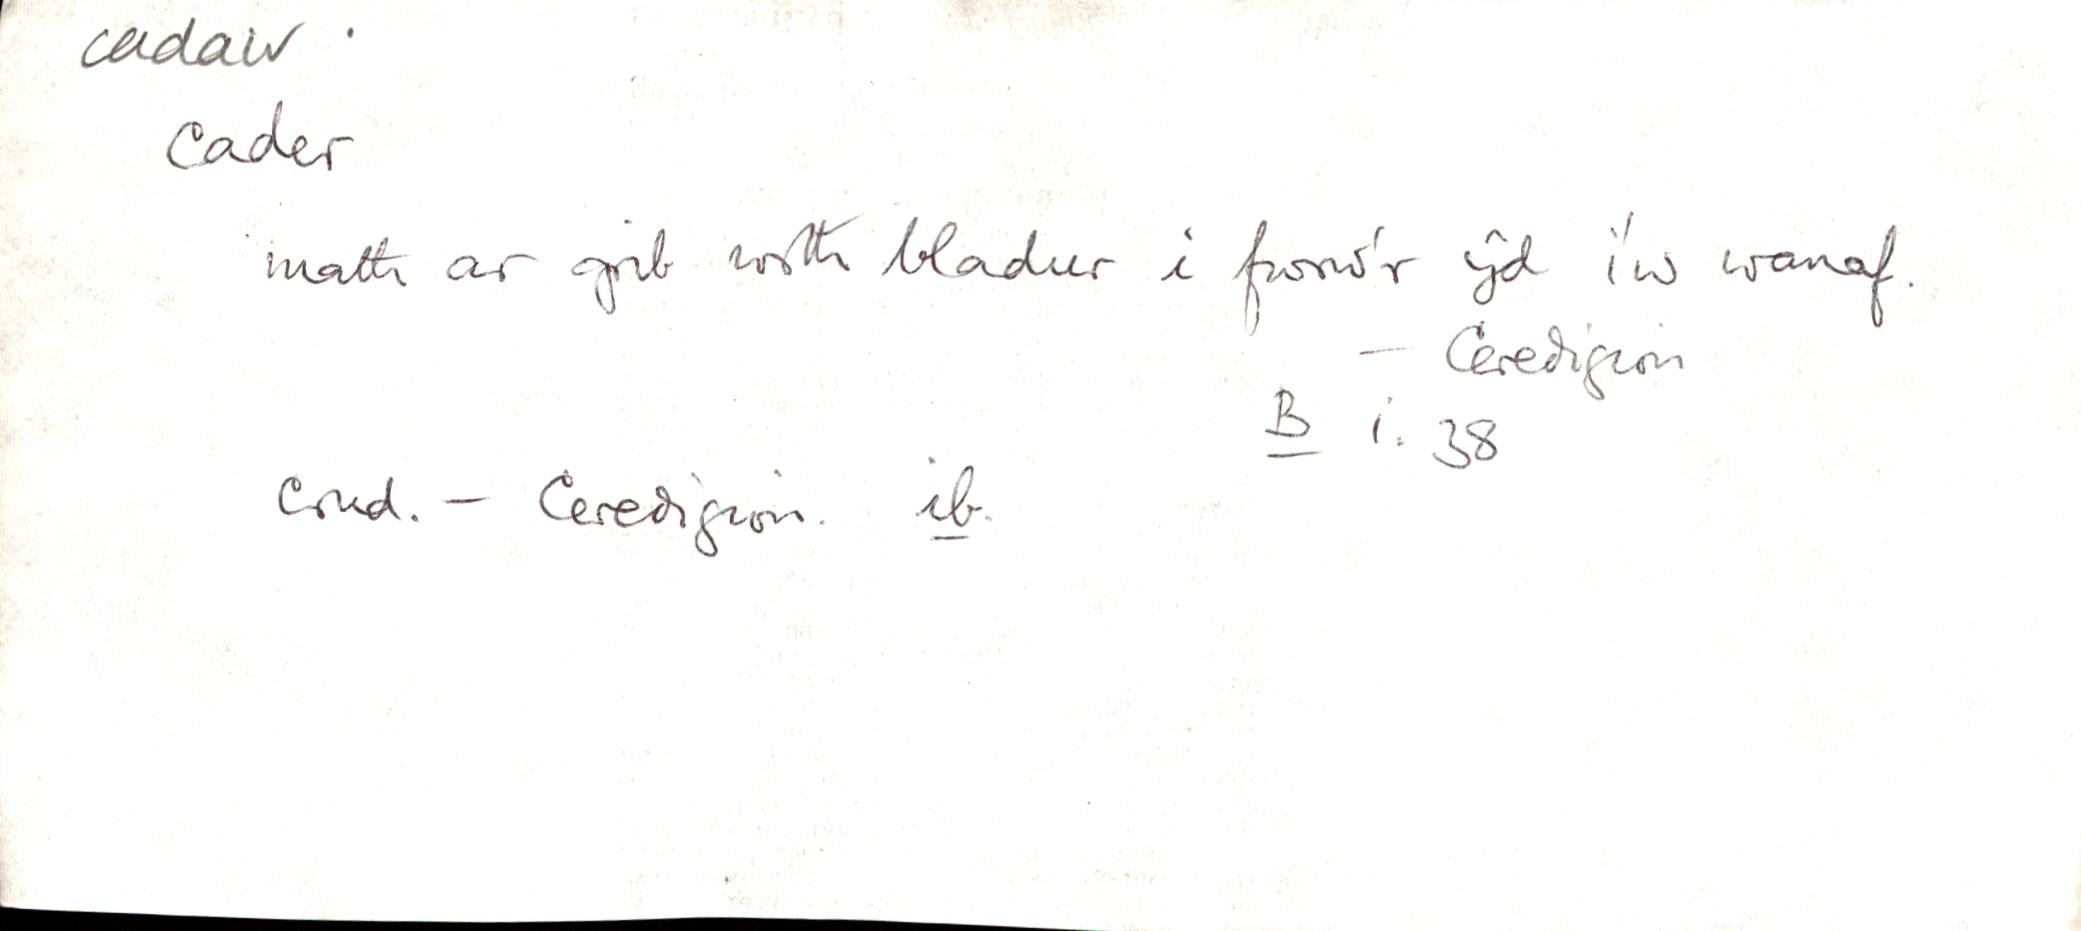 cadair
Cader
math ar grib wrth bladur i fwrw'r ŷd i'w wanaf.
— Ceredigion
B i. 38
Crud. — Ceredigion. ib.